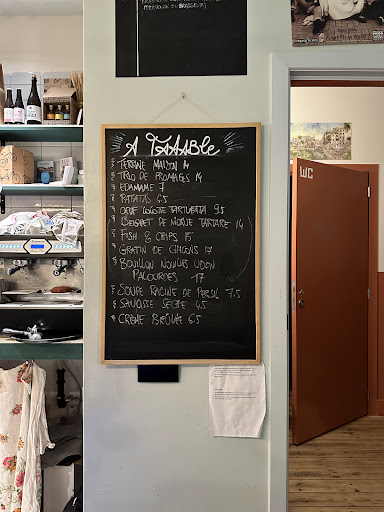 A TAAABLE
TERRINE MAISON 14
TRIO DE FROMAGES 14
EDAMAME 7
PATATAS 6.5
OEUF COCOTTE TARTUFATA 9.5
BEIGNET DE MORUE TARTARE 14
FISH & CHIPS 15
GRATIN DE 17
BOUILLON NOUILLES UDON
PALOURDES 17
SOUPE RACINE DE PERSIL 7.5
SAUCISSE SÈCHE 4.5
CRÈME BRÛLÉE 6.5
WC